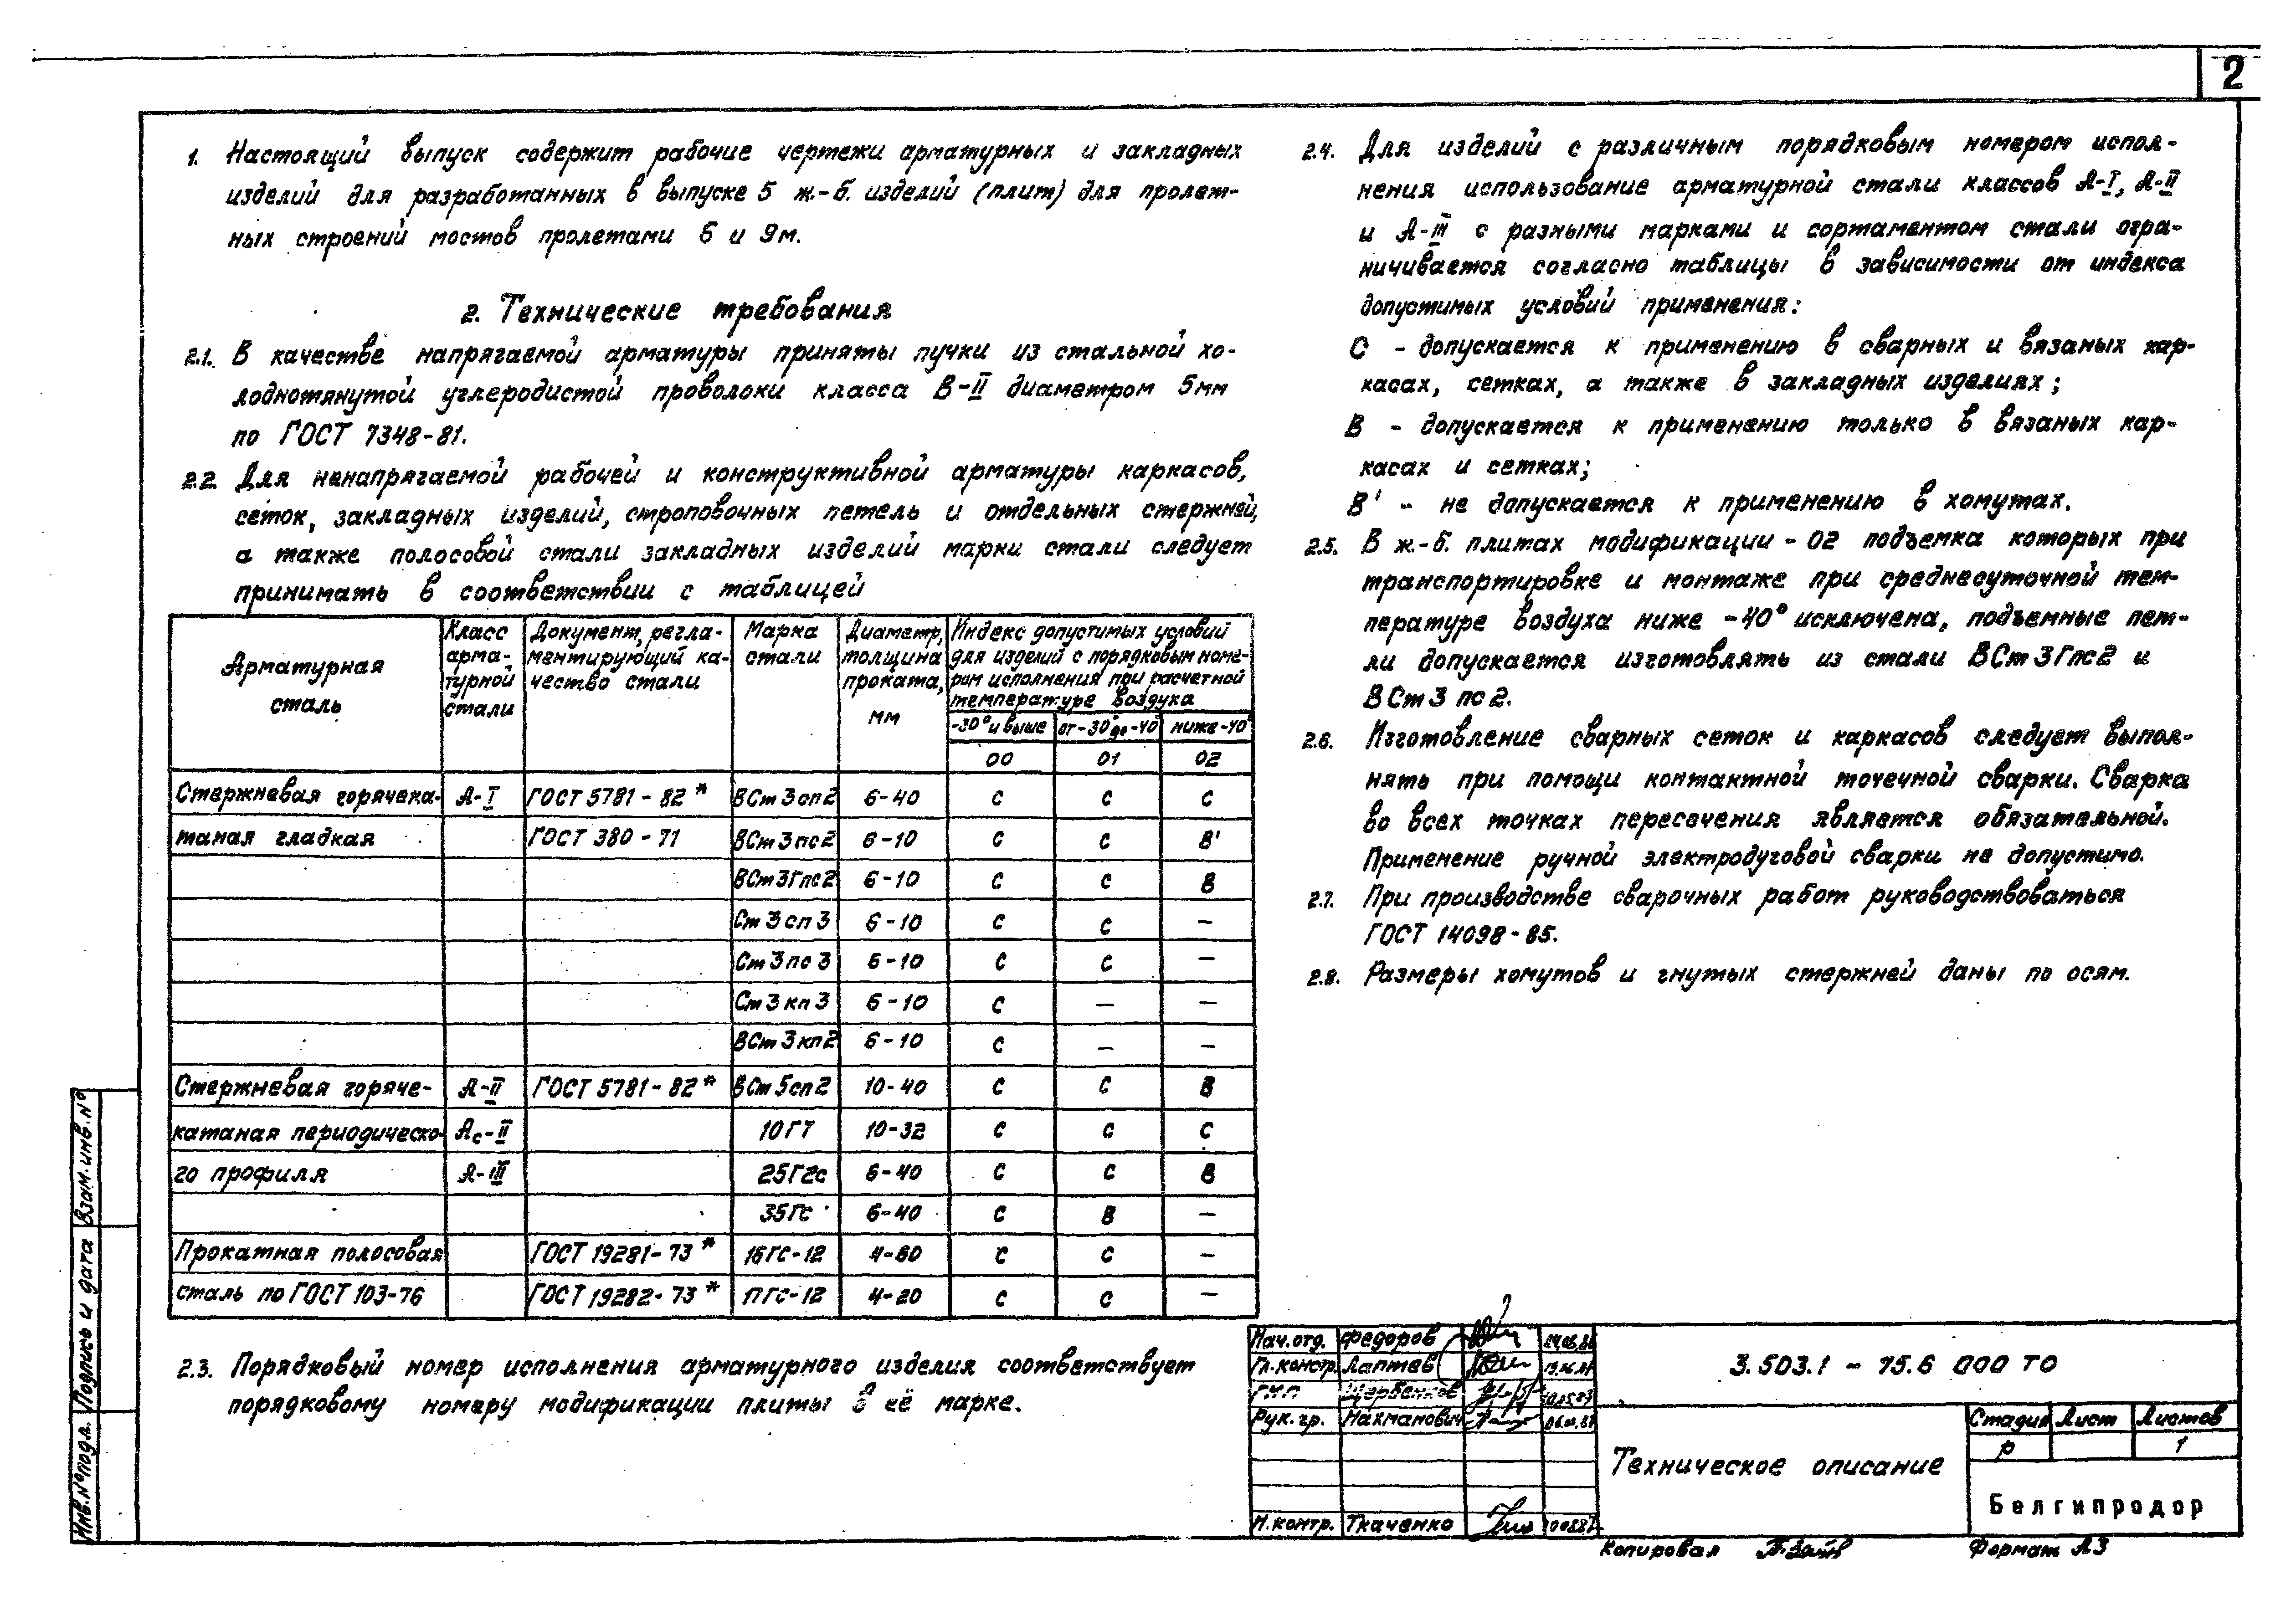 2
1. Настоящий выпуск содержит рабочие чертежи арматурных и закладных
изделий для разработанных в выпуске 5 ж.-б. изделий (плит) для пролет-
ных строений мостов пролетами 6 и 9м.
2. Технические требования
2.1. В качестве напрягаемой арматуры приняты пучки из стальной хо-
лоднотянутой углеродистой проволоки класса В-II диаметром 5мм
по ГОСТ 7348-81.
2.2. Для ненапрягаемой рабочей и конструктивной арматуры каркасов,
сеток, закладных изделий, строповочных петель и отдельных стержней,
а также полосовой стали закладных изделий марки стали следует
принимать в соответствии с таблицей
Арматурная сталь | Класс арма-турной стали | Документ, регла-ментирующий ка-чество стали | Марка стали | Диаметр, толщина проката, мм | Индекс допустимых условий для изделий с порядковым номе-ром исполнения при расчетной температуре воздуха
-30° и выше | от -30° до -40° | ниже -40°
00 | 01 | 02
Стержневая горячека- | А-I | ГОСТ 5781-82* | ВСт3сп2 | 6-40 | С | С | С
таная гладкая | ГОСТ 380-71 | ВСт3пс2 | 6-10 | С | С | В'
ВСт3Гпс2 | 6-10 | С | С | В
Ст3сп3 | 6-10 | С | С | —
Ст3пс3 | 6-10 | С | С | —
Ст3кп3 | 6-10 | С | — | —
ВСт3кп2 | 6-10 | С | — | —
Стержневая горяче- | А-II | ГОСТ 5781-82* | ВСт5сп2 | 10-40 | С | С | В
катаная периодическо- | Ас-II | 10ГТ | 10-32 | С | С | С
го профиля | А-III | 25Г2с | 6-40 | С | С | В
35ГС | 6-40 | С | В | —
Прокатная полосовая | ГОСТ 19281-73* | 16ГС-12 | 4-60 | С | С | —
сталь по ГОСТ 103-76 | ГОСТ 19282-73* | ПГС-12 | 4-20 | С | С | —
2.3. Порядковый номер исполнения арматурного изделия соответствует
порядковому номеру модификации плиты в её марке.
2.4. Для изделий с различным порядковым номером испол-
нения использование арматурной стали классов А-I, А-II
и А-III с разными марками и сортаментом стали огра-
ничивается согласно таблицы в зависимости от индекса
допустимых условий применения:
С - допускается к применению в сварных и вязаных кар-
касах, сетках, а также в закладных изделиях;
В - допускается к применению только в вязаных кар-
касах и сетках;
В' - не допускается к применению в хомутах.
2.5. В ж.-б. плитах модификации -02 подъемка которых при
транспортировке и монтаже при среднесуточной тем-
пературе воздуха ниже -40° исключена, подъемные пет-
ли допускается изготовлять из стали ВСт3Гпс2 и
ВСт3пс2.
2.6. Изготовление сварных сеток и каркасов следует выпол-
нять при помощи контактной точечной сварки. Сварка
во всех точках пересечения является обязательной.
Применение ручной электродуговой сварки не допустимо.
2.7. При производстве сварочных работ руководствоваться
ГОСТ 14098-85.
2.8. Размеры хомутов и гнутых стержней даны по осям.
Нач.отд. Федоров
Гл.констр. Лаптев
ГИП Щербенков
Рук.гр. Нахманович
Н.контр. Ткаченко
3.503.1 - 75.6 000 ТО
Техническое описание
Стадия Лист Листов
Р 1
Белгипродор
Копировал
Формат А3
Инв.№подл. Подпись и дата Взам.инв.№